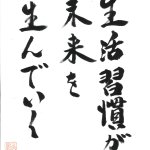 生活習慣が
未来を
生んでいく